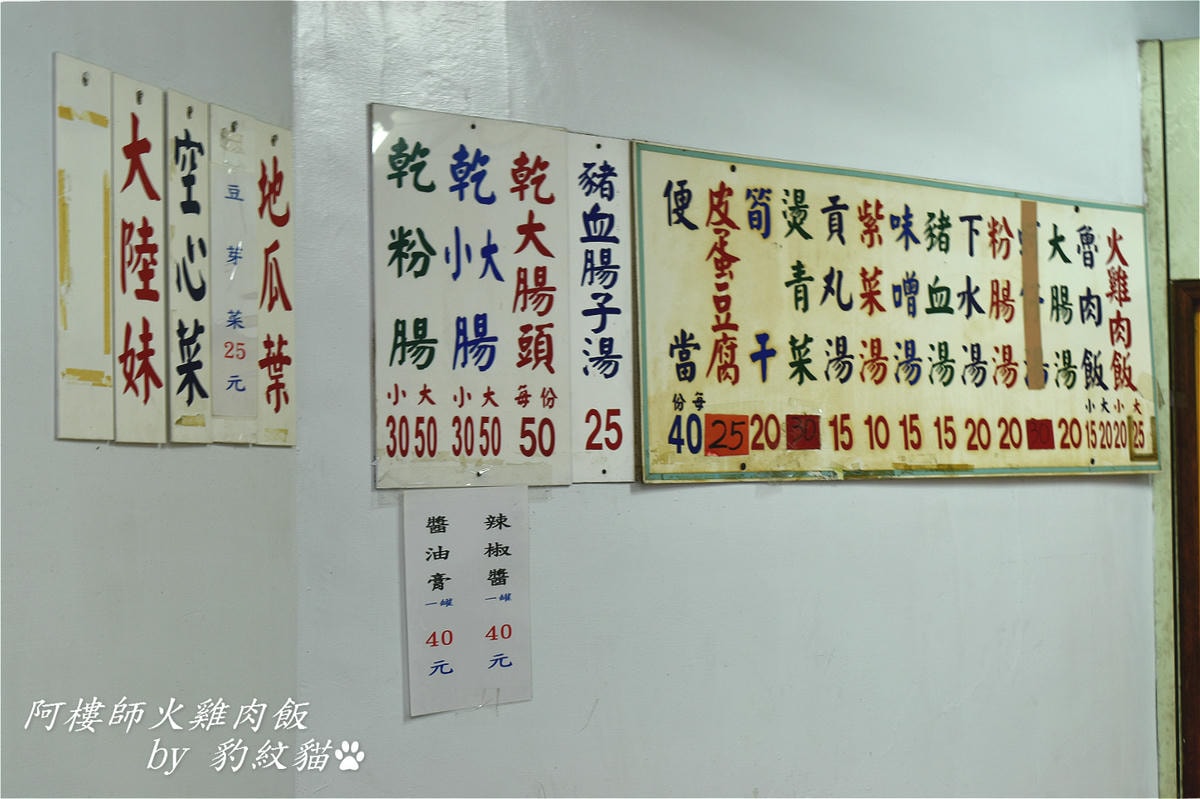 火雞肉飯 大 25 小 20
魯肉飯 大 20 小 15
大腸湯 20
30
粉腸湯 20
下水湯 20
豬血湯 15
味噌湯 15
紫菜湯 10
貢丸湯 15
燙青菜 30
筍干 20
皮蛋豆腐 25
便當 每份 40
豬血腸子湯 25
乾大腸頭 每份 50
乾大小腸 大 50 小 30
乾粉腸 大 50 小 30
辣椒醬 一罐 40元
醬油膏 一罐 40元
地瓜葉
豆芽菜 25元
空心菜
大陸妹
阿樓師火雞肉飯
by 豹紋貓